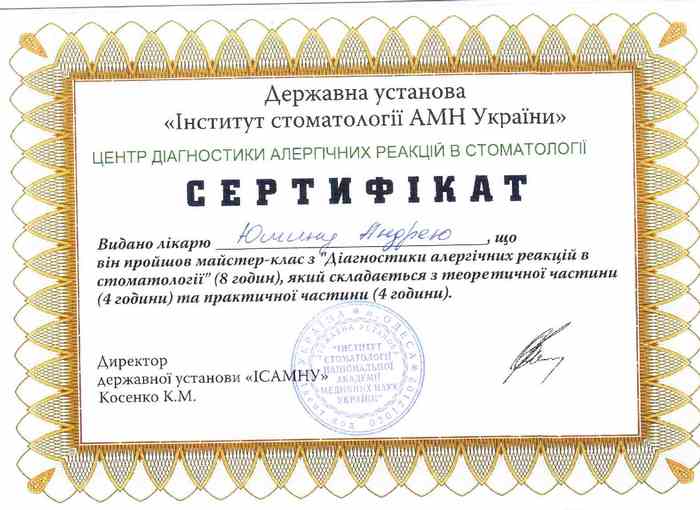 Державна установа
«Інститут стоматології АМН України»
ЦЕНТР ДІАГНОСТИКИ АЛЕРГІЧНИХ РЕАКЦІЙ В СТОМАТОЛОГІЇ
СЕРТИФІКАТ
Видано лікарю Андрею, що
він пройшов майстер-клас з "Діагностики алергічних реакцій в
стоматології" (8 годин), який складається з теоретичної частини
(4 години) та практичної частини (4 години).
Директор
державної установи «ІСАМНУ»
Косенко К.М.
УКРАЇНА * М.ОДЕСА
ДЕРЖАВНА УСТАНОВА
"ІНСТИТУТ
СТОМАТОЛОГІЇ
НАЦІОНАЛЬНОЇ
АКАДЕМІЇ
МЕДИЧНИХ НАУК
УКРАЇНИ"